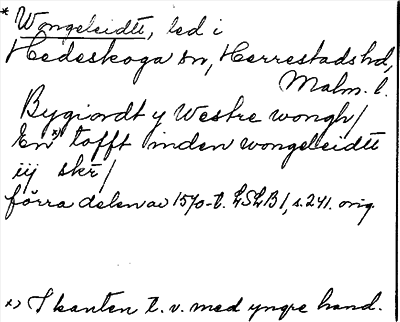 * Wongeleidtt, led i
Hedeskoga sn, Herrestads hd,
Malm. l.
Bygiordt y Westre wongh/
En*) tofft inden wongeleidtt
iij skr/
förra delen av 1570-t. LSLB1, s. 241. orig
*) I kanten t. v. med yngre hand.